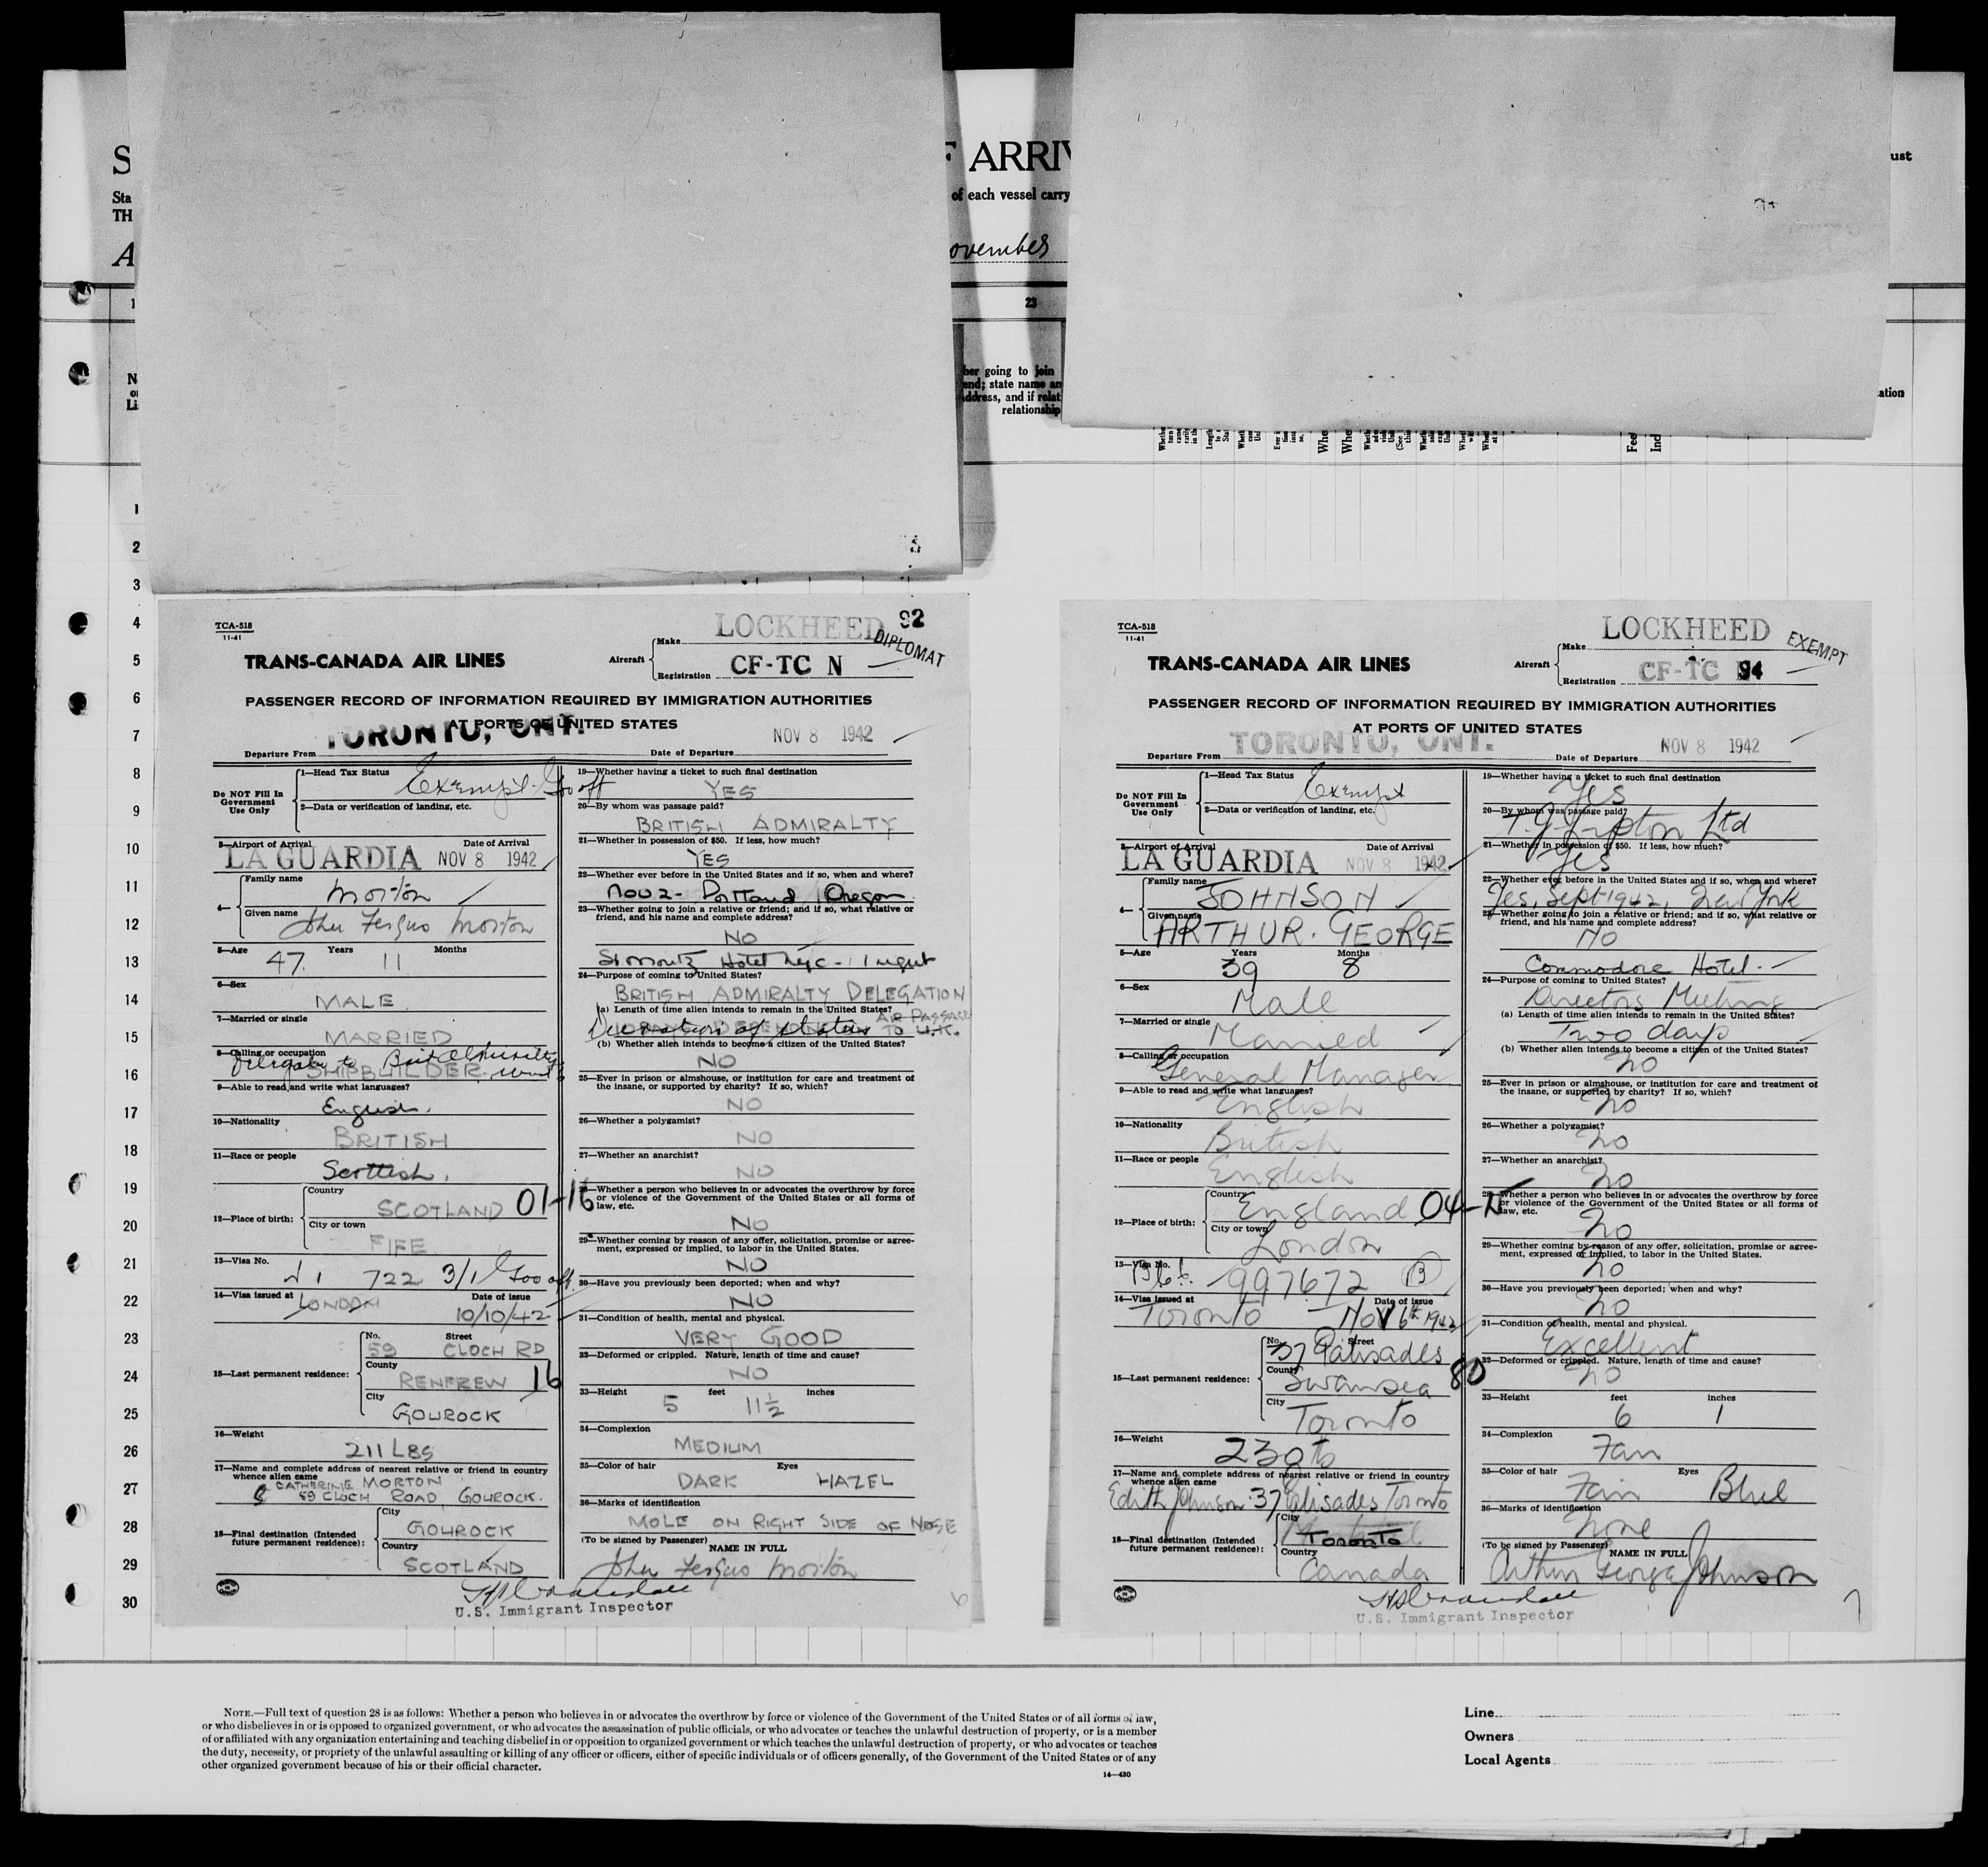 S
F ARRIV
ust
Sta
of each vessel carry
TH
A
ovember
1
23
her going to join
end; state name an
ddress, and if relat
relationship
N
o
Li
ation
1
2
3
4
5
6
7
8
9
10
11
12
13
14
15
16
17
18
19
20
21
22
23
24
25
26
27
28
29
30
TCA-518
11-41
LOCKHEED 92
DIPLOMAT
TRANS-CANADA AIR LINES
Aircraft
Make
Registration CF-TC N
PASSENGER RECORD OF INFORMATION REQUIRED BY IMMIGRATION AUTHORITIES
AT PORTS OF UNITED STATES
Departure From TORONTO, ONT.
Date of Departure NOV 8 1942
Do NOT Fill In Government Use Only
1—Head Tax Status Exempt
2—Data or verification of landing, etc.
3—Airport of Arrival Date of Arrival
LA GUARDIA NOV 8 1942
4— Family name Morton
Given name John Fergus Morton
5—Age Years Months
47 11
6—Sex
MALE
7—Married or single
MARRIED
8—Calling or occupation
SHIPBUILDER
9—Able to read and write what languages?
English.
10—Nationality
BRITISH
11—Race or people
Scottish.
12—Place of birth:
Country
SCOTLAND 01-16
City or town
FIFE
13—Visa No.
722 3/1
14—Visa issued at Date of issue
LONDON 10/10/42
15—Last permanent residence:
No. Street
59 CLOCH RD
County
RENFREW 16
City
GOUROCK
16—Weight
211 LBS
17—Name and complete address of nearest relative or friend in country
whence alien came
CATHERINE MORTON
59 CLOCH ROAD, GOUROCK.
18—Final destination (Intended
future permanent residence):
City
GOUROCK
Country
SCOTLAND
19—Whether having a ticket to such final destination
YES
20—By whom was passage paid?
BRITISH ADMIRALTY
21—Whether in possession of $50. If less, how much?
YES
22—Whether ever before in the United States and if so, when and where?
Nov 2- Portland Oregon
23—Whether going to join a relative or friend; and if so, what relative or
friend, and his name and complete address?
NO
St Moritz Hotel nyc - 1 night
24—Purpose of coming to United States?
BRITISH ADMIRALTY DELEGATION
(a) Length of time alien intends to remain in the United States?
AIR PASSAGE
TO U.K.
(b) Whether alien intends to become a citizen of the United States?
NO
25—Ever in prison or almshouse, or institution for care and treatment of
the insane, or supported by charity? If so, which?
NO
26—Whether a polygamist?
NO
27—Whether an anarchist?
NO
28—Whether a person who believes in or advocates the overthrow by force
or violence of the Government of the United States or all forms of
law, etc.
NO
29—Whether coming by reason of any offer, solicitation, promise or agree-
ment, expressed or implied, to labor in the United States.
NO
30—Have you previously been deported; when and why?
NO
31—Condition of health, mental and physical.
VERY GOOD
32—Deformed or crippled. Nature, length of time and cause?
NO
33—Height feet inches
5 11½
34—Complexion
MEDIUM
35—Color of hair Eyes
DARK HAZEL
36—Marks of identification
MOLE ON RIGHT SIDE OF NOSE
(To be signed by Passenger) NAME IN FULL
John Fergus Morton
U.S. Immigrant Inspector
6
TCA-518
11-41
LOCKHEED
EXEMPT
TRANS-CANADA AIR LINES
Aircraft
Make
Registration CF-TC 94
PASSENGER RECORD OF INFORMATION REQUIRED BY IMMIGRATION AUTHORITIES
AT PORTS OF UNITED STATES
Departure From TORONTO, ONT.
Date of Departure NOV 8 1942
Do NOT Fill In Government Use Only
1—Head Tax Status Exempt
2—Data or verification of landing, etc.
3—Airport of Arrival Date of Arrival
LA GUARDIA NOV 8 1942
4— Family name JOHNSON
Given name ARTHUR. GEORGE
5—Age Years Months
39 8
6—Sex
Male
7—Married or single
Married
8—Calling or occupation
General Manager
9—Able to read and write what languages?
English
10—Nationality
British
11—Race or people
English
12—Place of birth:
Country
England
City or town
London
13—Visa No.
997672 B
14—Visa issued at Date of issue
Toronto Nov 6th 1942
15—Last permanent residence:
No. Street
37 Palisades
County
Swansea 80
City
Toronto
16—Weight
230 lb
17—Name and complete address of nearest relative or friend in country
whence alien came
Edith Johnson. 37 Palisades Toronto
18—Final destination (Intended
future permanent residence):
City
Toronto
Country
Canada
19—Whether having a ticket to such final destination
Yes
20—By whom was passage paid?
T. J. Lipton Ltd
21—Whether in possession of $50. If less, how much?
Yes
22—Whether ever before in the United States and if so, when and where?
Yes, Sept 1942, New York
23—Whether going to join a relative or friend; and if so, what relative or
friend, and his name and complete address?
No
Commodore Hotel.
24—Purpose of coming to United States?
Directors Meeting
(a) Length of time alien intends to remain in the United States?
Two days
(b) Whether alien intends to become a citizen of the United States?
no
25—Ever in prison or almshouse, or institution for care and treatment of
the insane, or supported by charity? If so, which?
no
26—Whether a polygamist?
no
27—Whether an anarchist?
no
28—Whether a person who believes in or advocates the overthrow by force
or violence of the Government of the United States or all forms of
law, etc.
no
29—Whether coming by reason of any offer, solicitation, promise or agree-
ment, expressed or implied, to labor in the United States.
no
30—Have you previously been deported; when and why?
no
31—Condition of health, mental and physical.
Excellent
32—Deformed or crippled. Nature, length of time and cause?
no
33—Height feet inches
6 1
34—Complexion
Fair
35—Color of hair Eyes
Fair Blue
36—Marks of identification
none
(To be signed by Passenger) NAME IN FULL
Arthur George Johnson
U.S. Immigrant Inspector
7
NOTE.—Full text of question 28 is as follows: Whether a person who believes in or advocates the overthrow by force or violence of the Government of the United States or of all forms of law,
or who disbelieves in or is opposed to organized government, or who advocates the assassination of public officials, or who advocates or teaches the unlawful destruction of property, or is a member
of or affiliated with any organization entertaining and teaching disbelief in or opposition to organized government or which teaches the unlawful destruction of property, or who advocates or teaches
the duty, necessity, or propriety of the unlawful assaulting or killing of any officer or officers, either of specific individuals or of officers generally, of the Government of the United States or of any
other organized government because of his or their official character.
14—430
Line
Owners
Local Agents